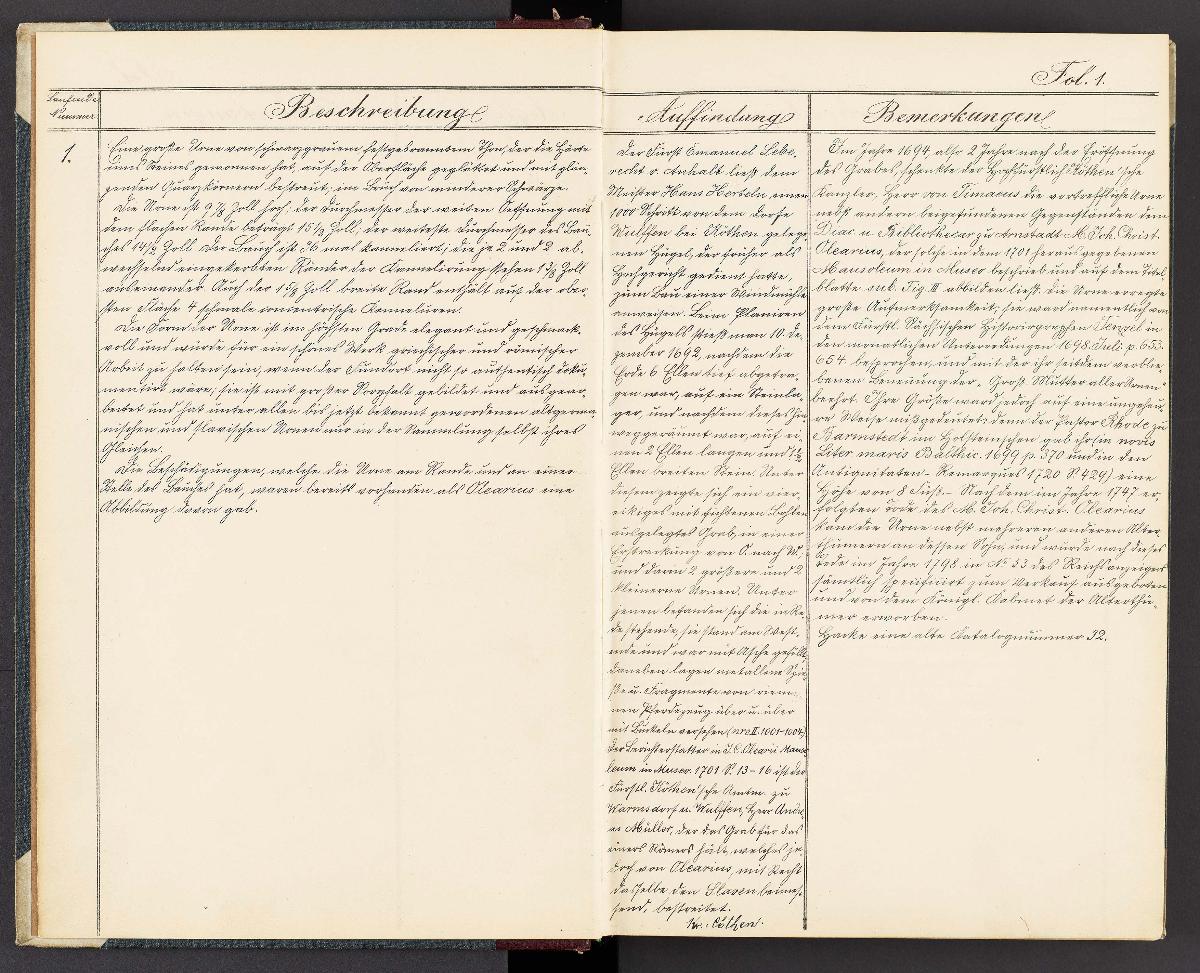 Fol. 1.
Laufende
Nummer
Beschreibung
Auffindung
Bemerkungen
1.
Eine große Urne von schwarzgrauem festgebranntem Thon, der die Härte
eines Steines gewonnen hat, auf der Oberfläche geglättet und mit glän-
zenden Quarzkörnern bestreut; im Bruch von minderer Schwärze.
Die Urne ist 9 7/8 Zoll hoch; der Durchmesser der weiten Oeffnung mit
dem flachen Rande beträgt 15 1/2 Zoll; der weiteste Durchmesser des Bau-
ches 14 1/2 Zoll. Der Bauch ist 36 mal kanneliert; die je 2 und 2 ab-
wechselnd eingekerbten Ränder der Kannelirung stehen 1 3/8 Zoll
auseinander. Auch der 1 5/8 Zoll breite Rand enthält auf der ober-
sten Fläche 4 schmale concentrische Kannelüren.
Die Form der Urne ist im höchsten Grade elegant und geschmack-
voll und würde für ein schönes Werk griechischer und römischer
Arbeit zu halten sein, wenn der Fundort nicht so authentisch doku-
mentirt wäre; sie ist mit großer Sorgfalt gebildet und ausgear-
beitet und hat unter allen bis jetzt bekannt gewordenen altgerma-
nischen und slavischen Urnen nur in der Sammlung selbst ihres
Gleichen.
Die Beschädigungen, welche die Urne am Rande und an einer
Stelle des Bauches hat, waren bereits vorhanden als Olearius eine
Abbildung davon gab.
Der Fürst Emanuel Lebe-
recht v. Anhalt ließ dem
Meister Hans Herbeln, einen
1000 Schritt von dem Dorfe
Wulffen bei Köthen gelege-
nen Hügel, der früher als
Hochgericht gedient hatte,
zum Bau einer Windmühle
anweisen. Beim Planiren
des Hügels stieß man 10. De-
zember 1692, nachdem die
Erde 6 Ellen tief abgetra-
gen war, auf ein Steinla-
ger, und nachdem dieses hin-
weggeräumt war, auf ei-
nen 2 Ellen langen und 1 1/2
Ellen breiten Stein. Unter
diesem zeigte sich ein vier-
eckiges mit fichtenen Bohlen
ausgelegtes Grab, in einer
Erstreckung von O. nach W.
und darin 2 größere und 2
kleinere Urnen. Unter
jenen befanden sich die in Re-
de stehende; sie stand am West-
ende und war mit Asche gefüllt,
daneben lagen metallene Spie-
ße u. Fragmente von riem-
nen Pferdezeug über u. über
mit Buckeln versehen (nro II. 1001-1004)
Der Berichterstatter in J. C. Olearii Mauso-
leum in Museo. 1701 S. 13-16 ist der
Fürstl. Köthen'sche Amtm. zu
Warmsdorf u. Wulffen, Herr Andre-
as Müller, der das Grab für das
eines Römers hält, welches je-
doch von Olearius, mit Recht
dasselbe den Slaven beimes-
send, bestreitet.
Kr. Cöthen.
Im Jahre 1694 also 2 Jahre nach der Eröffnung
des Grabes, schenkte der Hochfürstlich Köthen'sche
Kanzler, Herr von Timaeus die vortreffliche Urne
nebst andern beigefundenen Gegenständen dem
Diac. u. Bibliothecar zu Arnstadt M. Joh. Christ.
Olearius, der solche in dem 1701 herausgegebenen
Mausoleum in Museo beschrieb und auf dem Titel-
blatte sub. Fig. III abbilden ließ. Die Urne erregte
große Aufmerksamkeit; sie ward namentlich von
dem Fürstl. Sächsischen Historiographen Tenzel in
den monatlichen Unterredungen 1698. Juli. p. 653.
654. besprochen, und mit der ihr seitdem verblie-
benen Benennung der „Groß Mutter aller Urnen"
beehrt. Ihre Größe ward jedoch auf eine ungeheu-
re Weise mißgedeutet; denn der Pastor Rhode zu
Barmstedt im Holsteinschen gab ihr (in novis
Liter maris Balthic. 1699 p. 370 und in den
Antiquitaten-Remarques 1720 S. 429) eine
Höhe von 8 Fuß. - Nach dem im Jahre 1747 er-
folgten Tode des M. Joh. Christ. Olearius
kam die Urne nebst mehreren anderen Alter-
thümern an dessen Sohn, und wurde nach dieses
Tode im Jahre 1798 in No 33 des Reichsanzeigers
sämtlich specificirt zum Verkauf ausgeboten
und von dem Königl. Kabinet der Alterthü-
mer erworben.
Hacke eine alte Katalognummer 32.